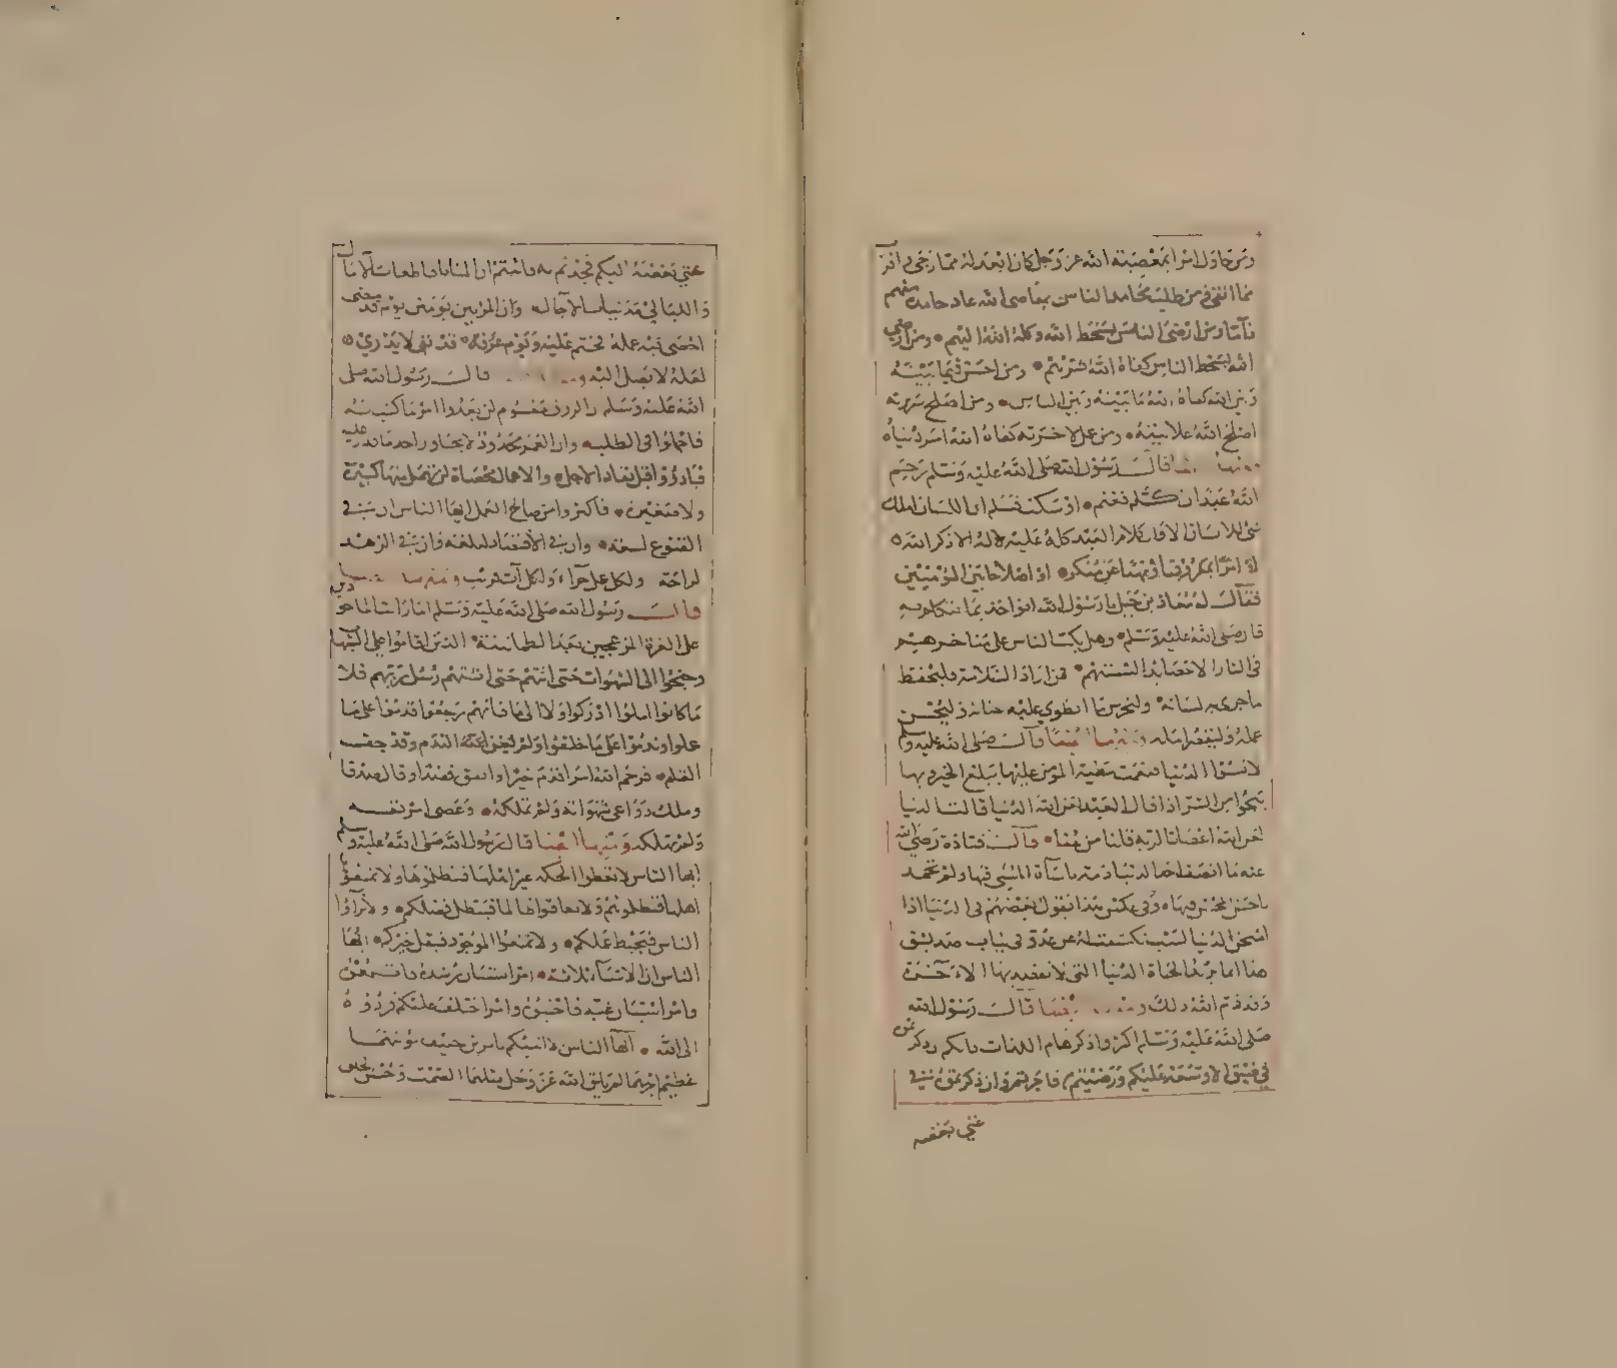 ومن حاول امرا بمعصية الله عز وجل كان ابعد له مما رجى واقرب
مما اتقى ومن طلب محامد الناس بمعاصى الله عاد حامده منهم
ذاما ومن ارضى الناس بسخط الله وكله الله اليهم ومن ارضى
الله بسخط الناس كفاه الله شرهم ومن احسن فيما بينه
وبين الله كفاه الله ما بينه وبين الناس ومن اصلح سريرته
اصلح الله علانيته ومن عمل لاخرته كفاه الله امر دنياه
ومنها ايضا قال رسول الله صلى الله عليه وسلم رحم
الله عبدا تكلم فغنم او سكت فسلم ان اللسان املك
شئ للانسان الا وان كلام العبد كله عليه لا له الا ذكر الله
او امرا بمعروف او نهيا عن منكر او اصلاحا بين المؤمنين
فقال له معاذ بن جبل يا رسول الله انؤاخذ بما نتكلم به
قال صلى الله عليه وسلم وهل يكب الناس على مناخرهم
فى النار الا حصايد السنتهم فمن اراد السلامة فليحفظ
ما جرى به لسانه وليحرس ما انطوى عليه جنانه وليحسن
عمله وليقصر امله ومنها ايضا قال صلى الله عليه وسلم
لا تسبوا الدنيا فنعمت مطية المؤمن عليها يبلغ الخير وبها
ينجوا من الشر اذا قال العبد لعن الله الدنيا قالت الدنيا
لعن الله اعصانا لربه قلنا من هنا قال قتادة رضى الله
عنه ما انصف احد الدنيا ذمت باساة المسئ فيها ولم تحمد
باحسان محسن فيها وفى عكس هذا نقول بعضهم فى الدنيا اذا
امتحن الدنيا لبيب تكشفت له عن عدو فى ثياب صديق
هذا انما يريد الحياة الدنيا التى لا نفع بها الاخرة
وقد ذم الله ذلك ومنها ايضا قال رسول الله
صلى الله عليه وسلم اكثروا ذكر هادم اللذات فانكم ان ذكرتموه
فى ضيق الا وسعه عليكم ورضيتم به فاجرتم وان ذكرتموه فى
غنى بغضه
غنى بغضه اليكم فجدتم به فاثبتم ان المنايا قاطعات الامال
والليالى مدنيات الاجال وان المرء بين يومين يوم قد مضى
احصى فيه عمله فختم عليه ويوم قد بقى لا يدرى
لعله لا يصل اليه ومنها ايضا قال رسول الله صلى
الله عليه وسلم الرزق مقسوم لن يعدوا امرؤ ما كتب له
فاجملوا فى الطلب وان العمر محدود لا يجاوز احد ما قدر عليه
فبادروا قبل نفاد الاجل والاعمال محصاة لن يهمل منها كبيرة
ولا صغيرة فاكثروا من صالح العمل ايها الناس ان فى
القنوع لسعة وان فى الاقتصاد لبلغة وان فى الزهد
لراحة ولكل عمل جزاء وكل آت قريب ومنها ايضا
قال رسول الله صلى الله عليه وسلم اما رايت الماخوذين
على الغرة المزعجين بعد الطمانينة الذين اقاموا على الشبهات
وجنحوا الى الشهوات حتى اتتهم رسل ربهم فلا
ما كانوا املوا ادركوا ولا الى ما فاتهم رجعوا قدموا على ما
عملوا وندموا على ما خلفوا ولم يغن عنهم الندم وقد جف
القلم فرحم الله امرا قدم خيرا وانفق قصدا وقال صدقا
وملك دواعى شهواته ولم تملكه وعصى امر نفسه
ولم تملكه ومنها ايضا قال رسول الله صلى الله عليه وسلم
ايها الناس لا تعطوا الحكمة غير اهلها فتظلموها ولا تمنعوها
اهلها فتظلموهم ولا تعاقبوا ظالما فيبطل فضلكم ولا تراؤا
الناس فيحبط عملكم ولا تمنعوا الموجود فيقل خيركم ايها
الناس ان الاشياء ثلاثة امر استبان رشده فاتبعوه
وامر استبان غيه فاجتنبوه وامر اختلف عليكم فردوه
الى الله ايها الناس الا انبئكم بامرين خفيف مؤنتهما
عظيم اجرهما لم يلق الله عز وجل بمثلهما الصمت وحسن الخلق